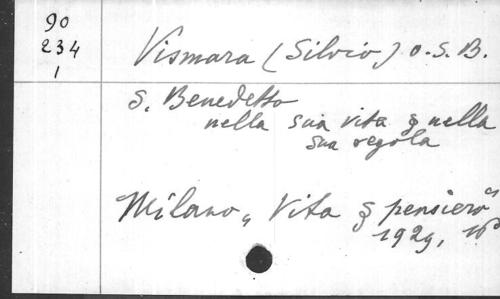 90
234
1
Vismara (Silvio) O.S.B.
S. Benedetto
nella sua vita & nella
sua regola
Milano, „Vita & pensiero"
1929,